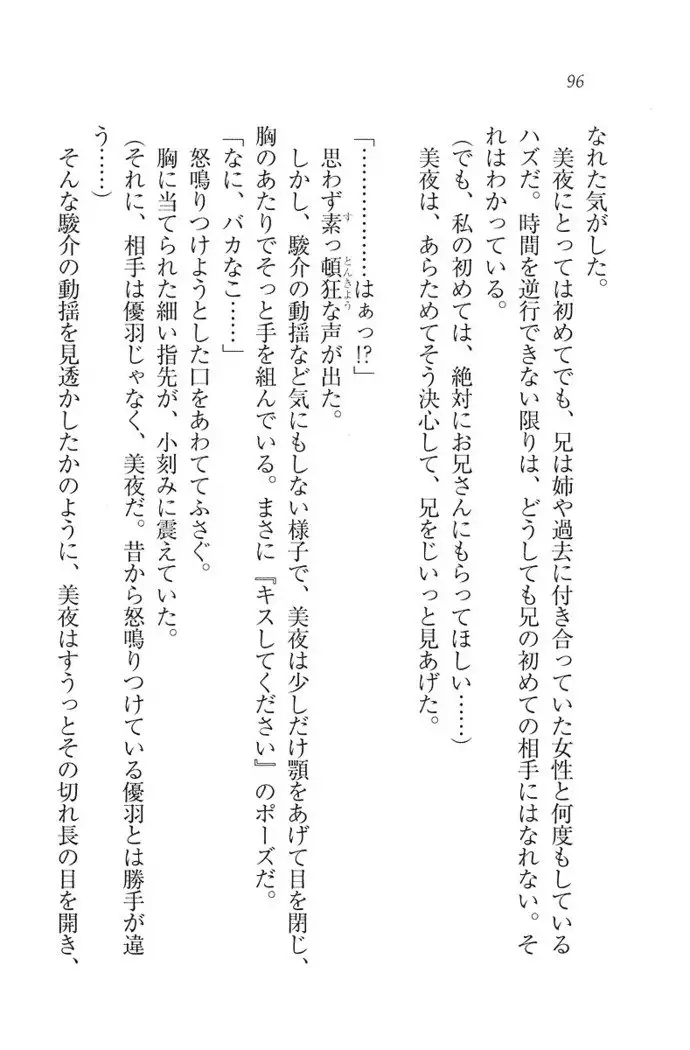 96
なれた気がした。
美夜にとっては初めてでも、兄は姉や過去に付き合っていた女性と何度もしている
ハズだ。時間を逆行できない限りは、どうしても兄の初めての相手にはなれない。そ
れはわかっている。
(でも、私の初めては、絶対にお兄さんにもらってほしい……)
美夜は、あらためてそう決心して、兄をじいっと見あげた。
「………………はぁっ!?」
思わず素っ頓狂な声が出た。
しかし、駿介の動揺など気にもしない様子で、美夜は少しだけ顎をあげて目を閉じ、
胸のあたりでそっと手を組んでいる。まさに『キスしてください』のポーズだ。
「なに、バカなこ……」
怒鳴りつけようとした口をあわててふさぐ。
胸に当てられた細い指先が、小刻みに震えていた。
(それに、相手は優羽じゃなく、美夜だ。昔から怒鳴りつけている優羽とは勝手が違
う……)
そんな駿介の動揺を見透かしたかのように、美夜はすうっとその切れ長の目を開き、